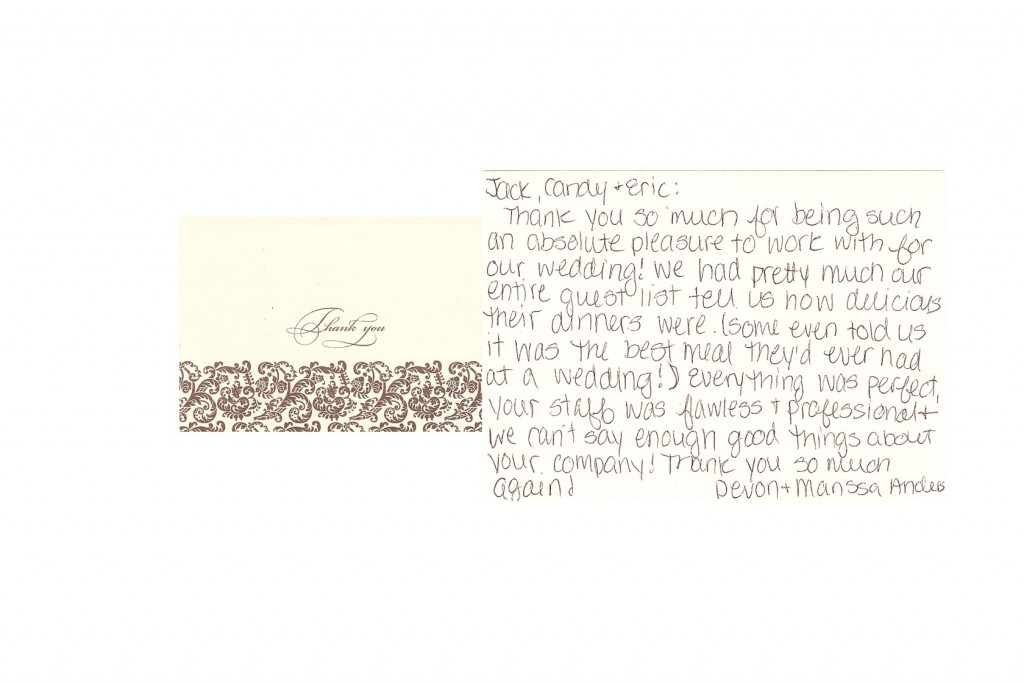 Thank you
Jack, Candy + Eric:
Thank you so much for being such
an absolute pleasure to work with for
our wedding! We had pretty much our
entire guest list tell us how delicious
their dinners were. (some even told us
it was the best meal they'd ever had
at a wedding!) Everything was perfect,
your staff was flawless + professional +
we can't say enough good things about
your company! Thank you so much
again!
Devon + Marissa Anders